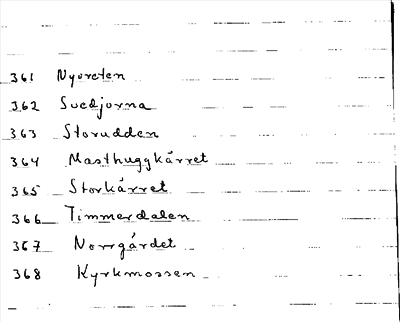 361 Nyoreten
362 Svedjorna
363 Storudden
364 Masthuggkärret
365 Storkärret
366 Timmerdalen
367 Norrgärdet
368 Kyrkmossen